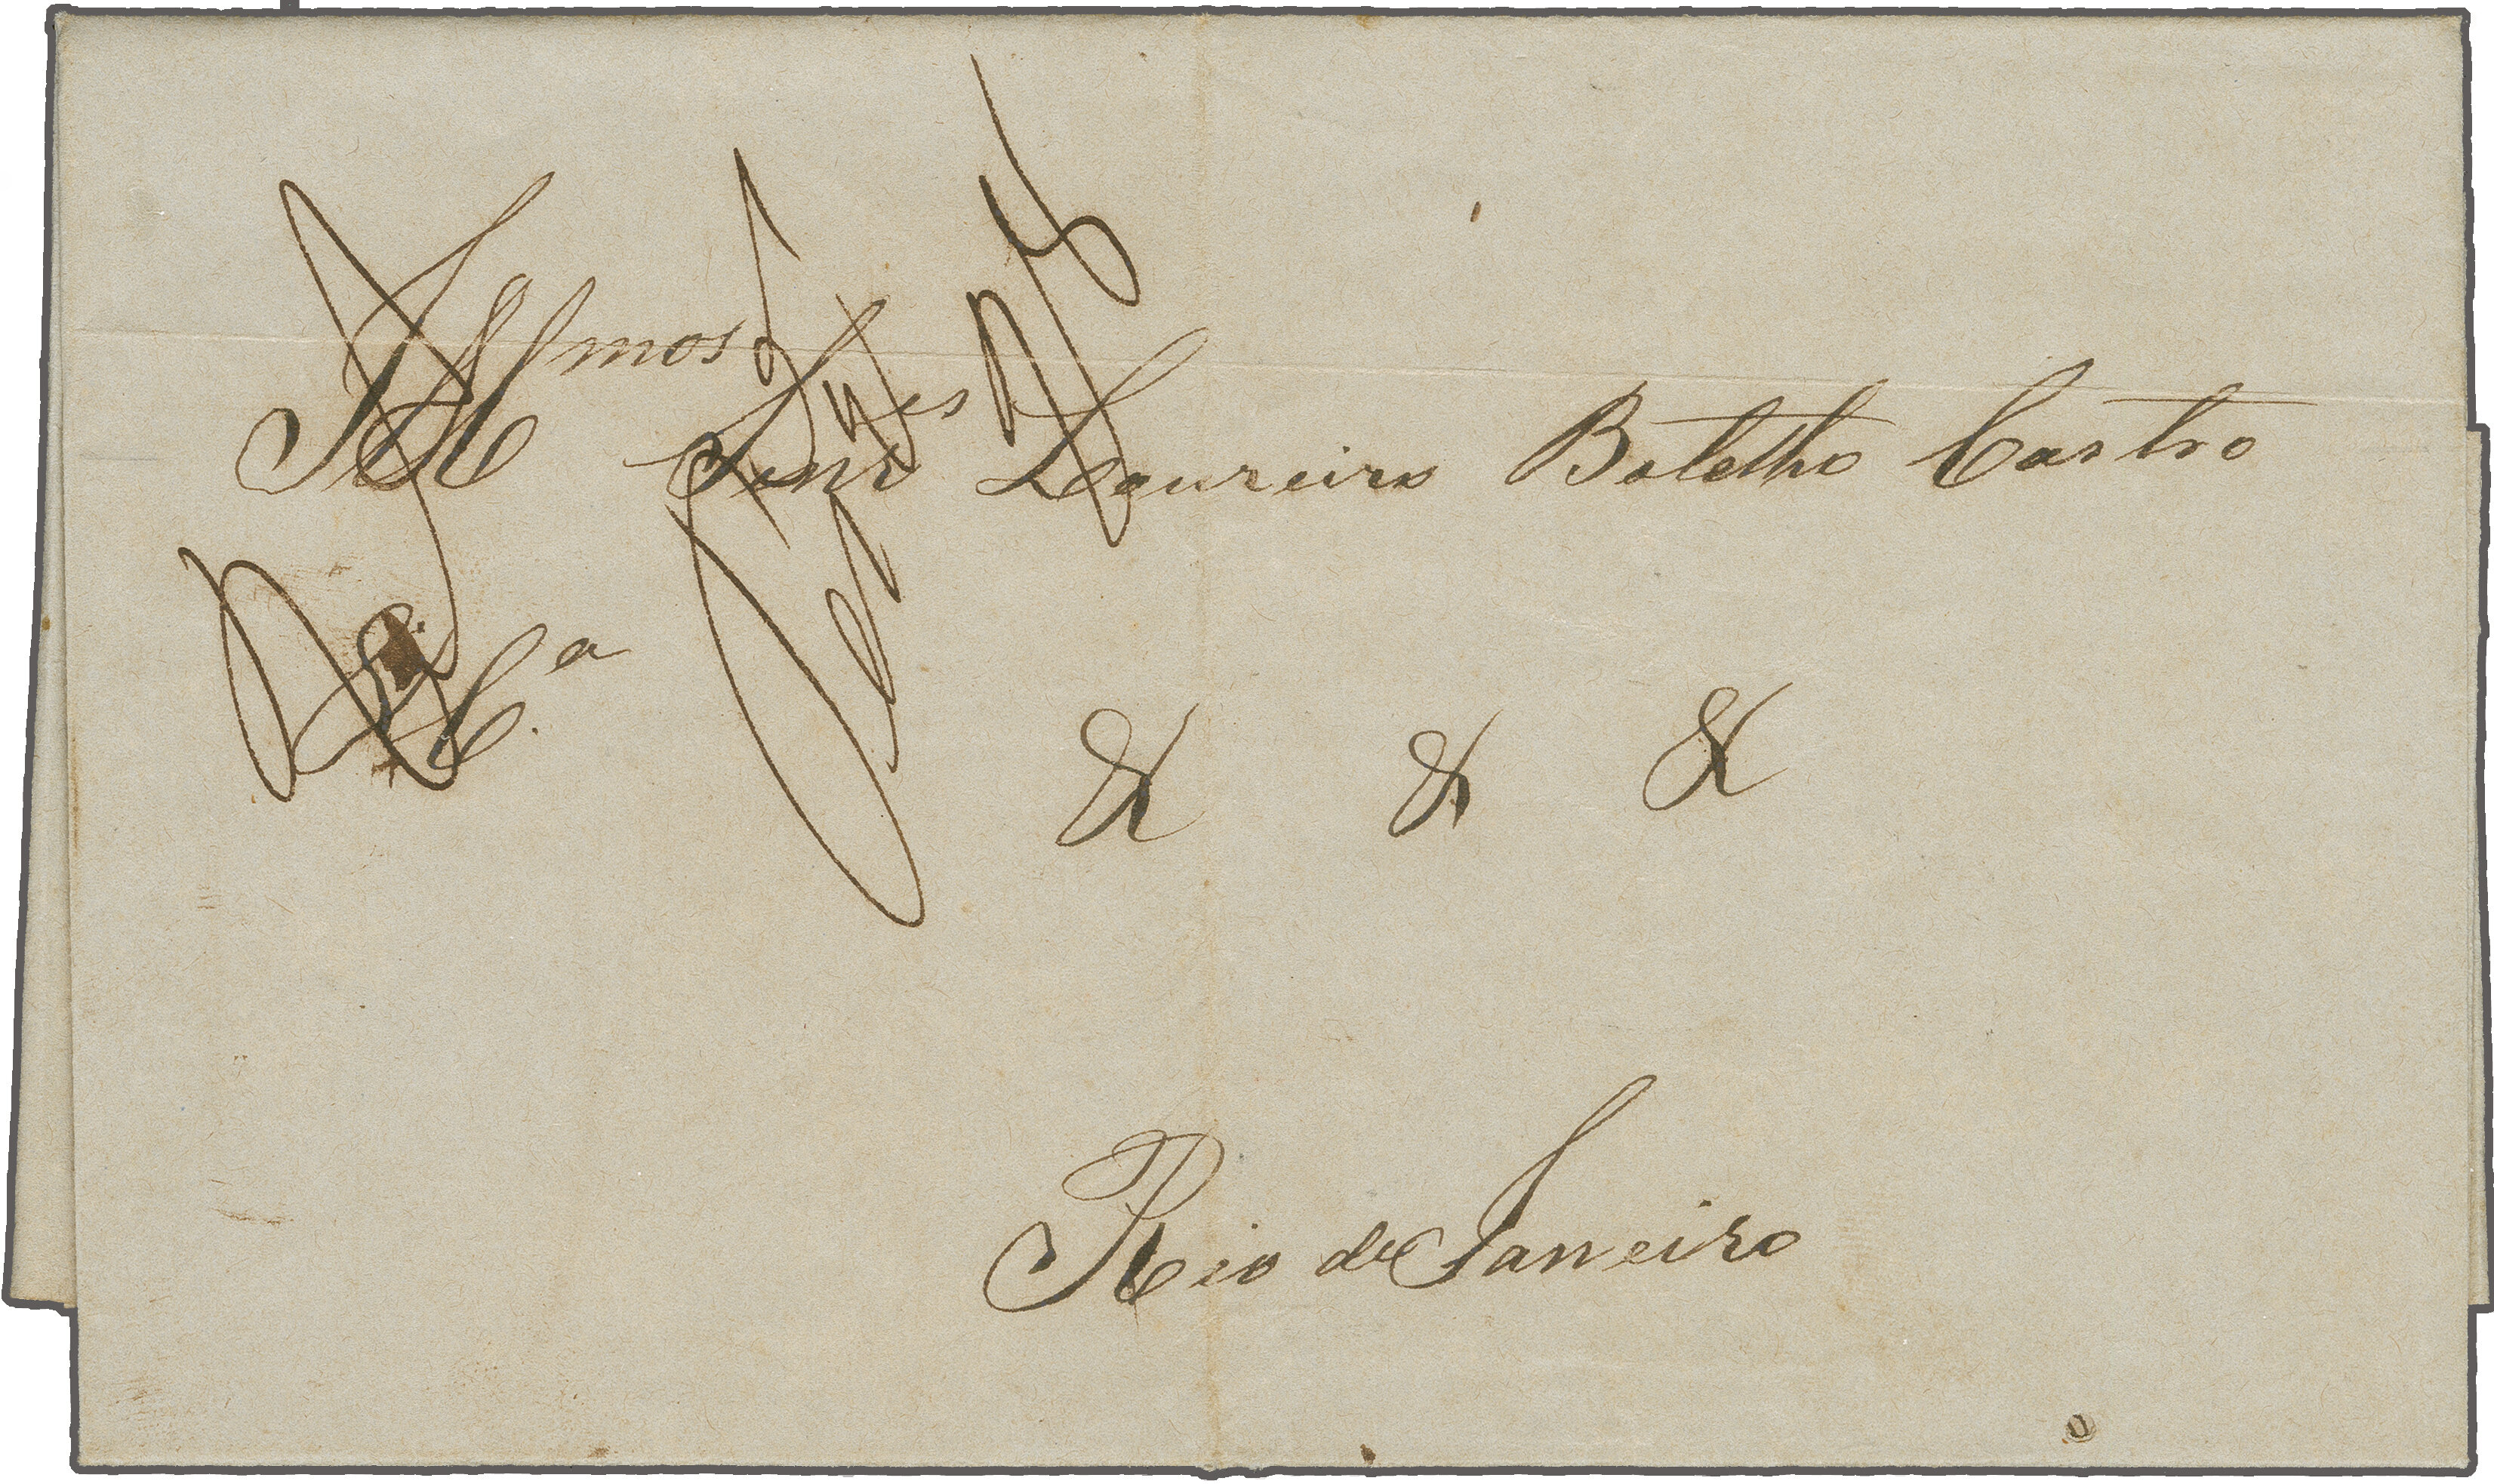 Illmos Senres Loureiro Botelho Castro
& C.a
& & &
Rio de Janeiro